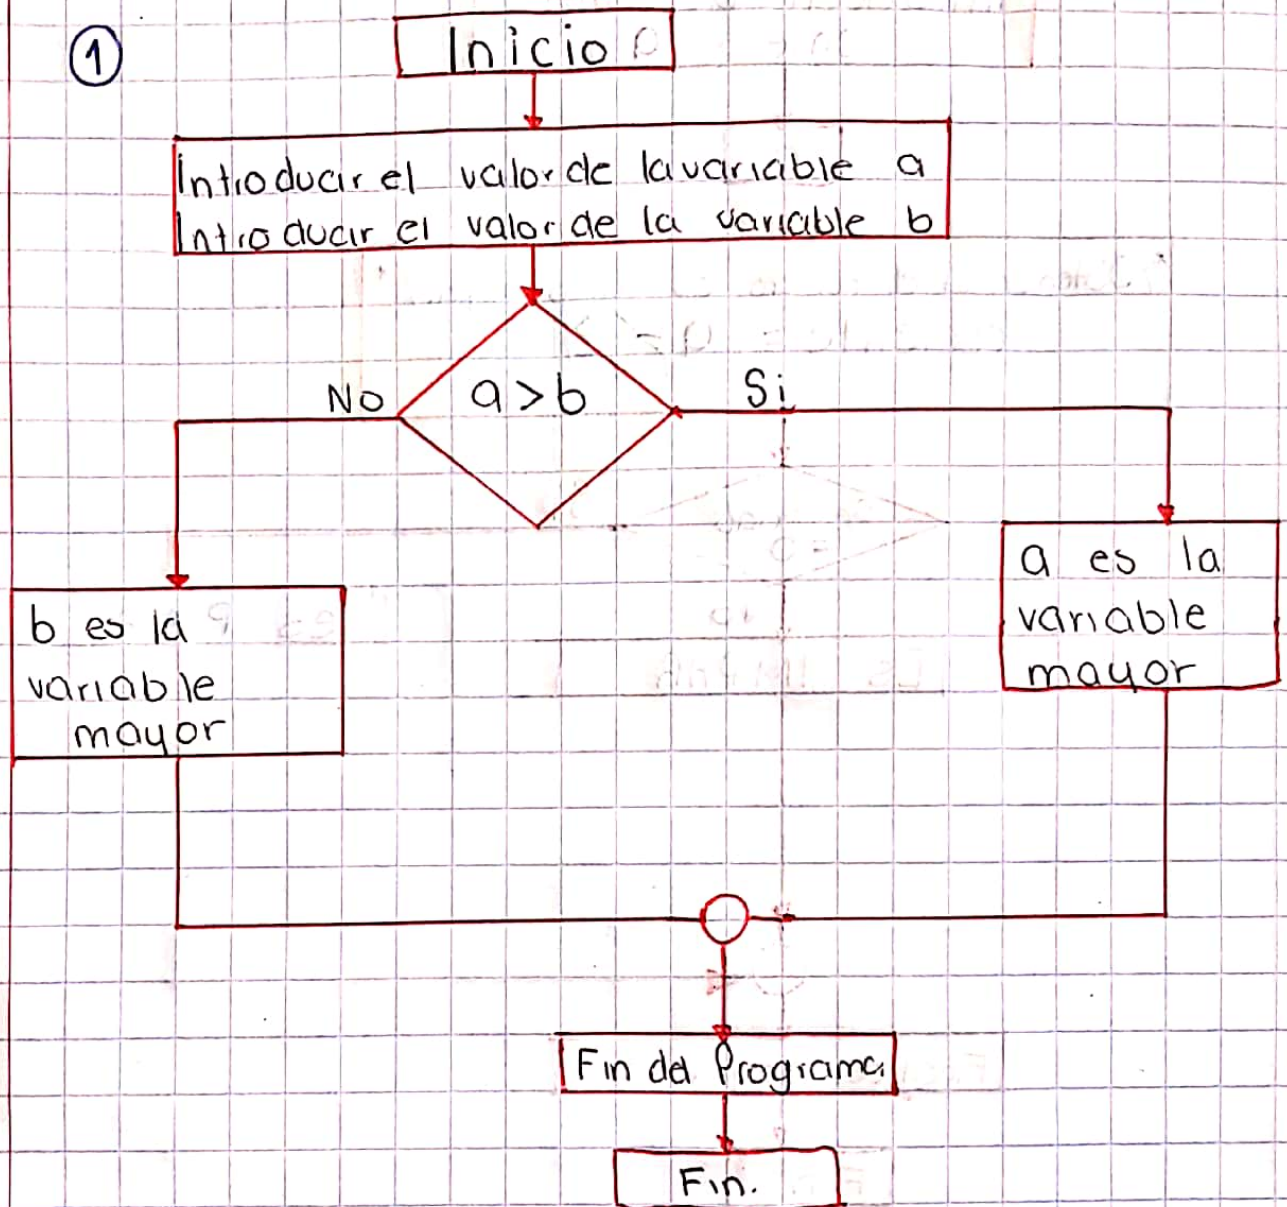 1
Inicio
Introducir el valor de la variable a
Introducir el valor de la variable b
a > b
No
Si
b es la
variable
mayor
a es la
variable
mayor
Fin del Programa
Fin.